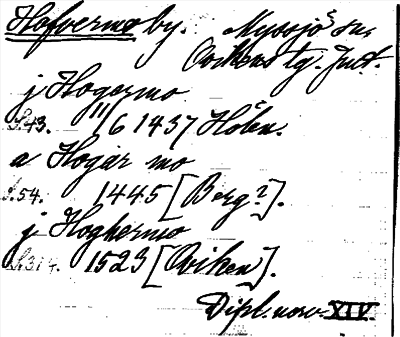 Hofvermo by. Myssjö sn,
Ovikens tg. Jmtl.
j Hogermo
S.43. 11/6 1437 Hösn.
a Hogar mo
S.54. 1445 [Berg?].
j Hoghermo
S.314. 1523 [Oviken].
Dipl. norv. XIV.